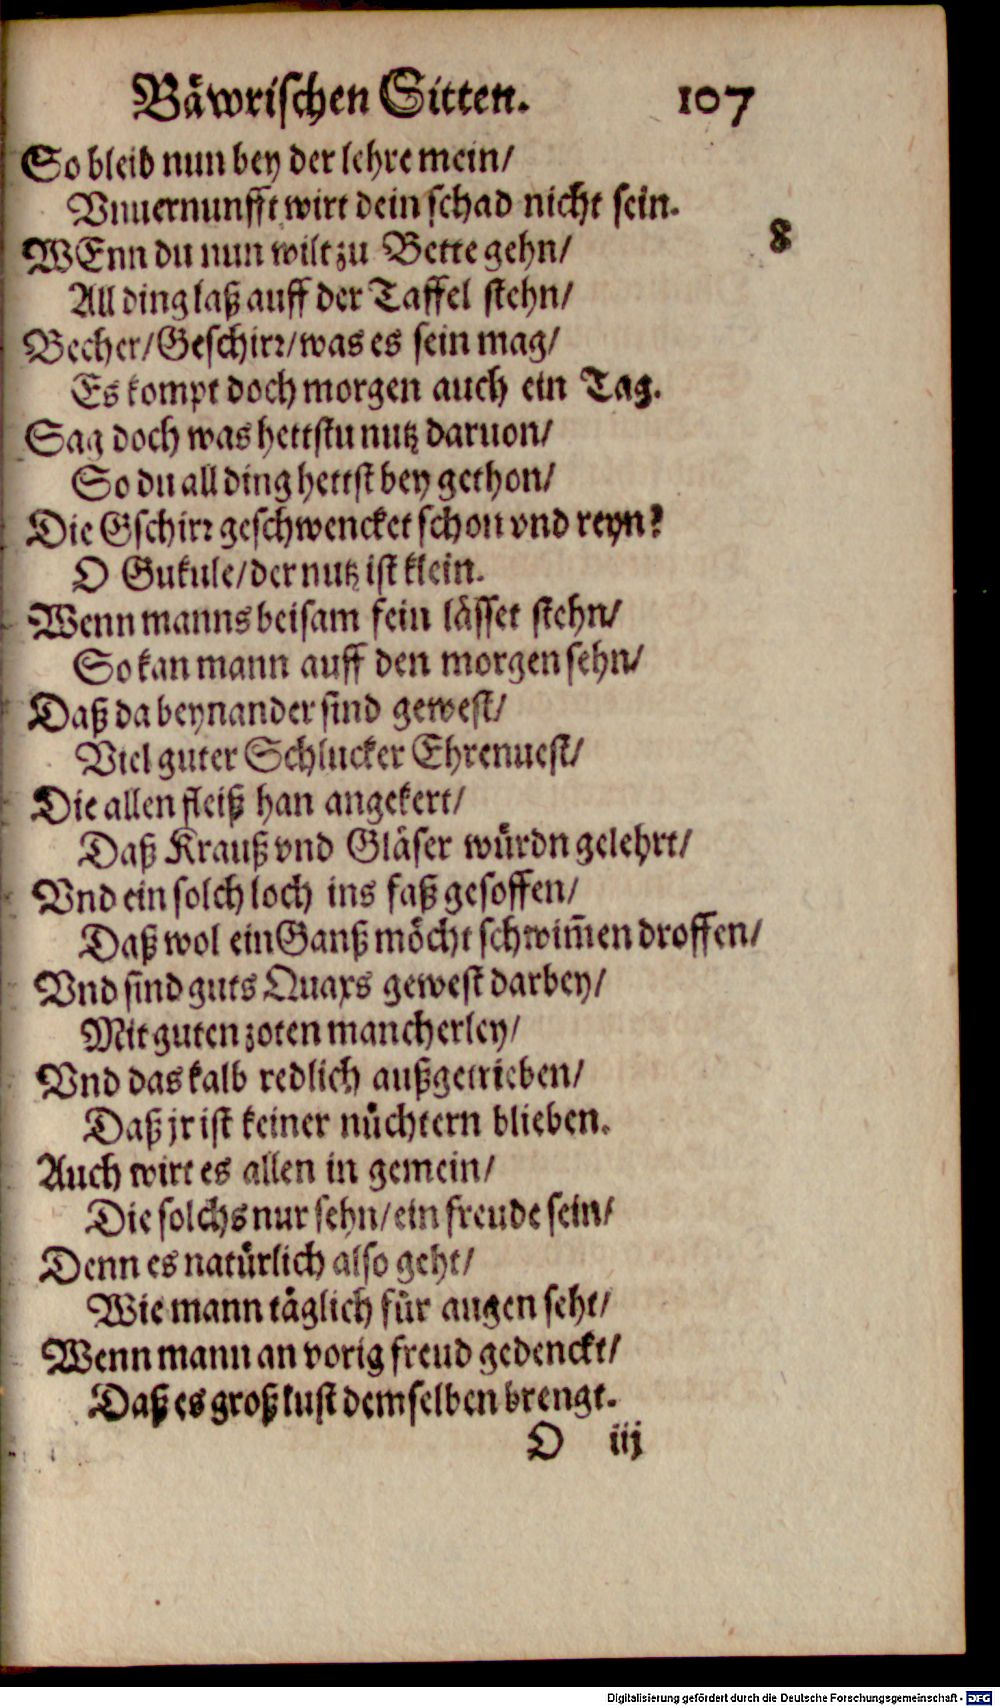 Bäwrischen Sitten. 107
So bleib nun bey der lehre mein/
Vnuernunfft wirt dein schad nicht sein.
8
WEnn du nun wilt zu Bette gehn/
All ding laß auff der Taffel stehn/
Becher/Geschirr/was es sein mag/
Es kompt doch morgen auch ein Tag.
Sag doch was hettstu nutz daruon/
So du all ding hettst bey gethon/
Die Gschirr geschwencket schon vnd reyn?
O Gukule/der nutz ist klein.
Wenn manns beisam fein lässet stehn/
So kan mann auff den morgen sehn/
Daß da beynander sind gewest/
Viel guter Schlucker Ehrenuest/
Die allen fleiß han angekert/
Daß Krauß vnd Gläser würdn gelehrt/
Vnd ein solch loch ins faß gesoffen/
Daß wol ein Ganß möcht schwim̃en droffen/
Vnd sind guts Quaxs gewest darbey/
Mit guten zoten mancherley/
Vnd das kalb redlich außgetrieben/
Daß jr ist keiner nüchtern blieben.
Auch wirt es allen in gemein/
Die solchs nur sehn/ein freude sein/
Denn es natürlich also geht/
Wie mann täglich für augen seht/
Wenn mann an vorig freud gedenckt/
Daß es groß lust demselben brengt.
O iij
Digitalisierung gefördert durch die Deutsche Forschungsgemeinschaft - DFG